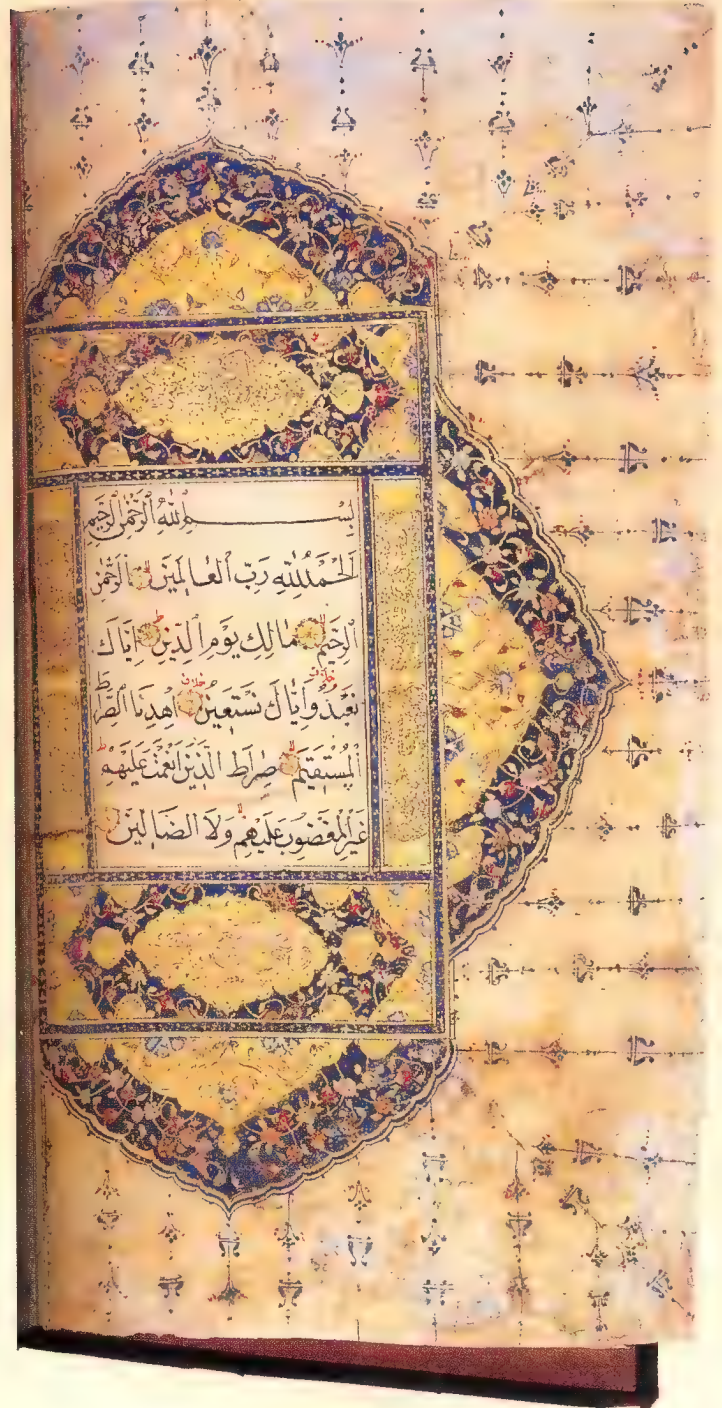 بِسْمِ اللهِ الرَّحْمٰنِ الرَّحِيمِ
اَلْحَمْدُ لِلّٰهِ رَبِّ الْعَالَمِينَ اَلرَّحْمٰنِ
الرَّحِيمِ مَالِكِ يَوْمِ الدِّينِ اِيَّاكَ
نَعْبُدُ وَاِيَّاكَ نَسْتَعِينُ اِهْدِنَا الصِّرَاطَ
الْمُسْتَقِيمَ صِرَاطَ الَّذِينَ اَنْعَمْتَ عَلَيْهِمْ
غَيْرِ الْمَغْضُوبِ عَلَيْهِمْ وَلَا الضَّالِّينَ